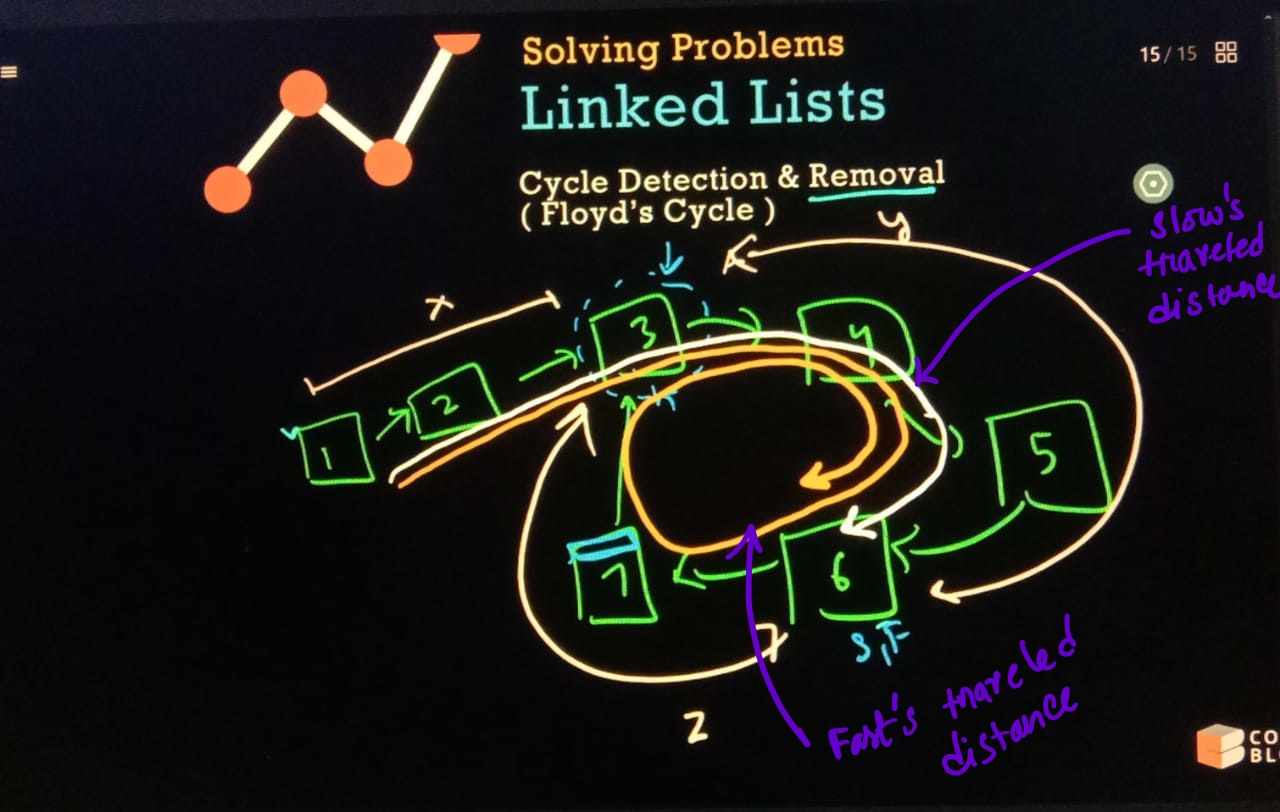 Solving Problems
15 / 15
Linked Lists
Cycle Detection & Removal
( Floyd's Cycle )
y
Slow's
traveled
distance
x
3
4
2
1
5
7
6
S,F
Fast's traveled
distance
z
CO
BL